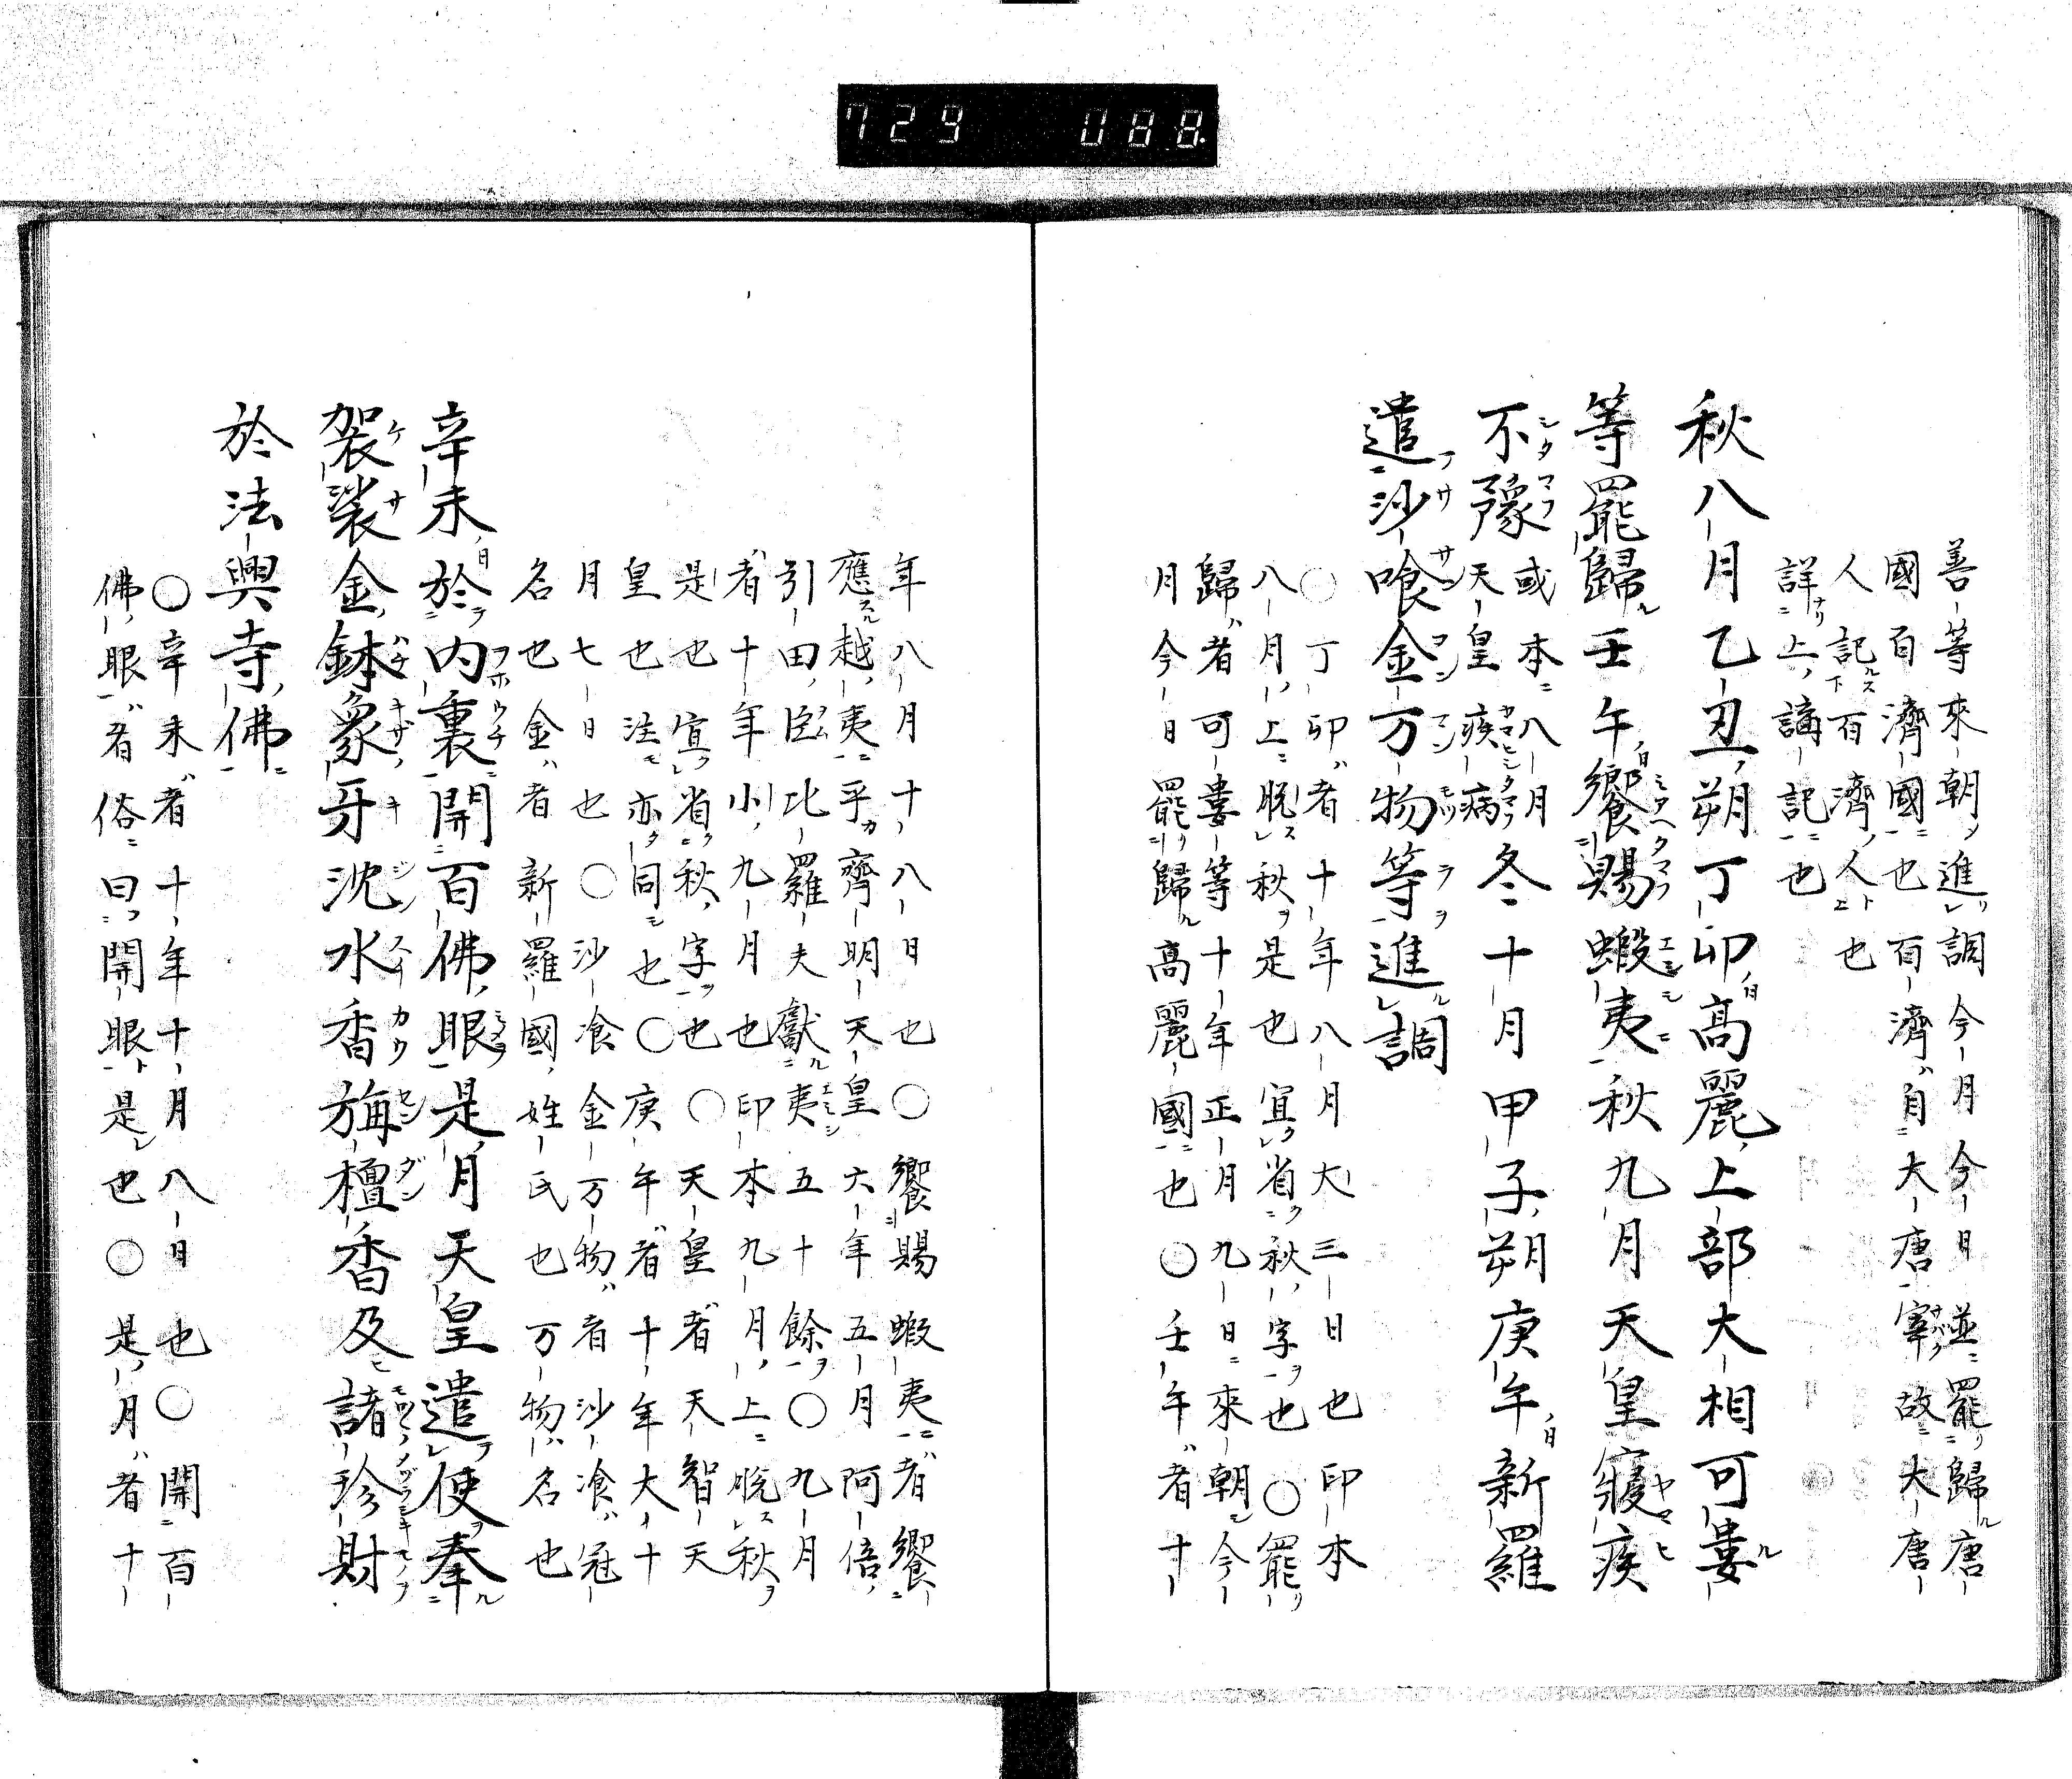 729 088
善等來朝進調今月今日並罷歸唐
國百濟國也百濟自大唐宰故大唐
人記百濟人也
詳上講記也
秋八月乙丑朔丁卯高麗上部大相可婁
等罷歸壬午饗賜蝦夷秋九月天皇寢疾
不豫或本八月天皇疾病冬十月甲子朔庚午新羅
遣沙飡金万物等進調
○丁卯者十年八月大三日也印本
八月上脱秋是也宜省秋字也○罷
歸者可婁等十年正月九日來朝今
月今日罷歸高麗國也○壬午者十
年八月十八日也○饗賜蝦夷者饗
應越夷乎齊明天皇六年五月阿倍
引田臣比羅夫獻夷五十餘○九月
者十年小九月也印本九月上脱秋
是也宜省秋字也○天皇者天智天
皇也法亦同也○庚午者十年大十
月七日也○沙飡金万物者沙飡冠
名也金者新羅國姓氏也万物名也
辛未於内裏開百佛眼是月天皇遣使奉
袈裟金鉢象牙沈水香旃檀香及諸珍財
於法興寺佛
○辛未者十年十月八日也○開百
佛眼者俗曰開眼是也○是月者十